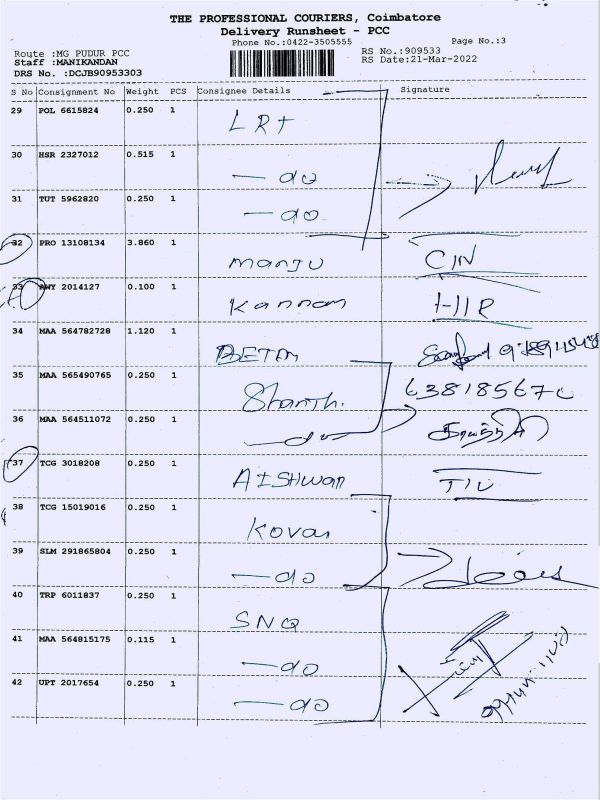 THE PROFESSIONAL COURIERS, Coimbatore
Delivery Runsheet - PCC
Phone No.:0422-3505555
Page No.:3
Route :MG PUDUR PCC
RS No.:909533
Staff :MANIKANDAN
RS Date:21-Mar-2022
DRS No. :DCJB90953303
S No Consignment No Weight PCS Consignee Details Signature
29 POL 6615824 0.250 1 LRT
30 HSR 2327012 0.515 1 — do
31 TUT 5962820 0.250 1 — do
32 PRO 13108134 3.860 1 Manju C/N
33 AWY 2014127 0.100 1 Kannan H/R
34 MAA 564782728 1.120 1
35 MAA 565490765 0.250 1 Shanthi.
36 MAA 564511072 0.250 1 — do
37 TCG 3018208 0.250 1 AISHwan
38 TCG 15019016 0.250 1 Kovai
39 SLM 291865804 0.250 1 — do
40 TRP 6011837 0.250 1 SNQ
41 MAA 564815175 0.115 1 — do
42 UPT 2017654 0.250 1 — do